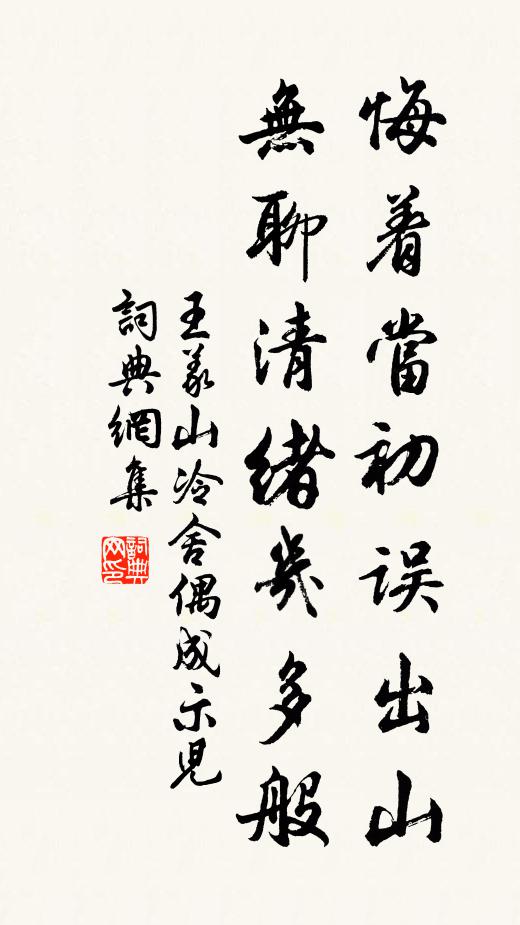 悔着當初誤出山
無聊清緒幾多般
王義山冷舍偶成示児
詞典網集
詞典網印